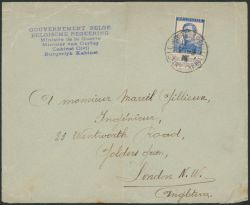 GOUVERNEMENT BELGE
BELGISCHE REGEERING
Ministre de la Guerre
Minister van Oorlog
Cabinet Civil
Burgerlijk Kabinet
A monsieur Marcel Jillieux,
Ingénieur,
22 Wentworth Road,
Golders Green,
London N.W.